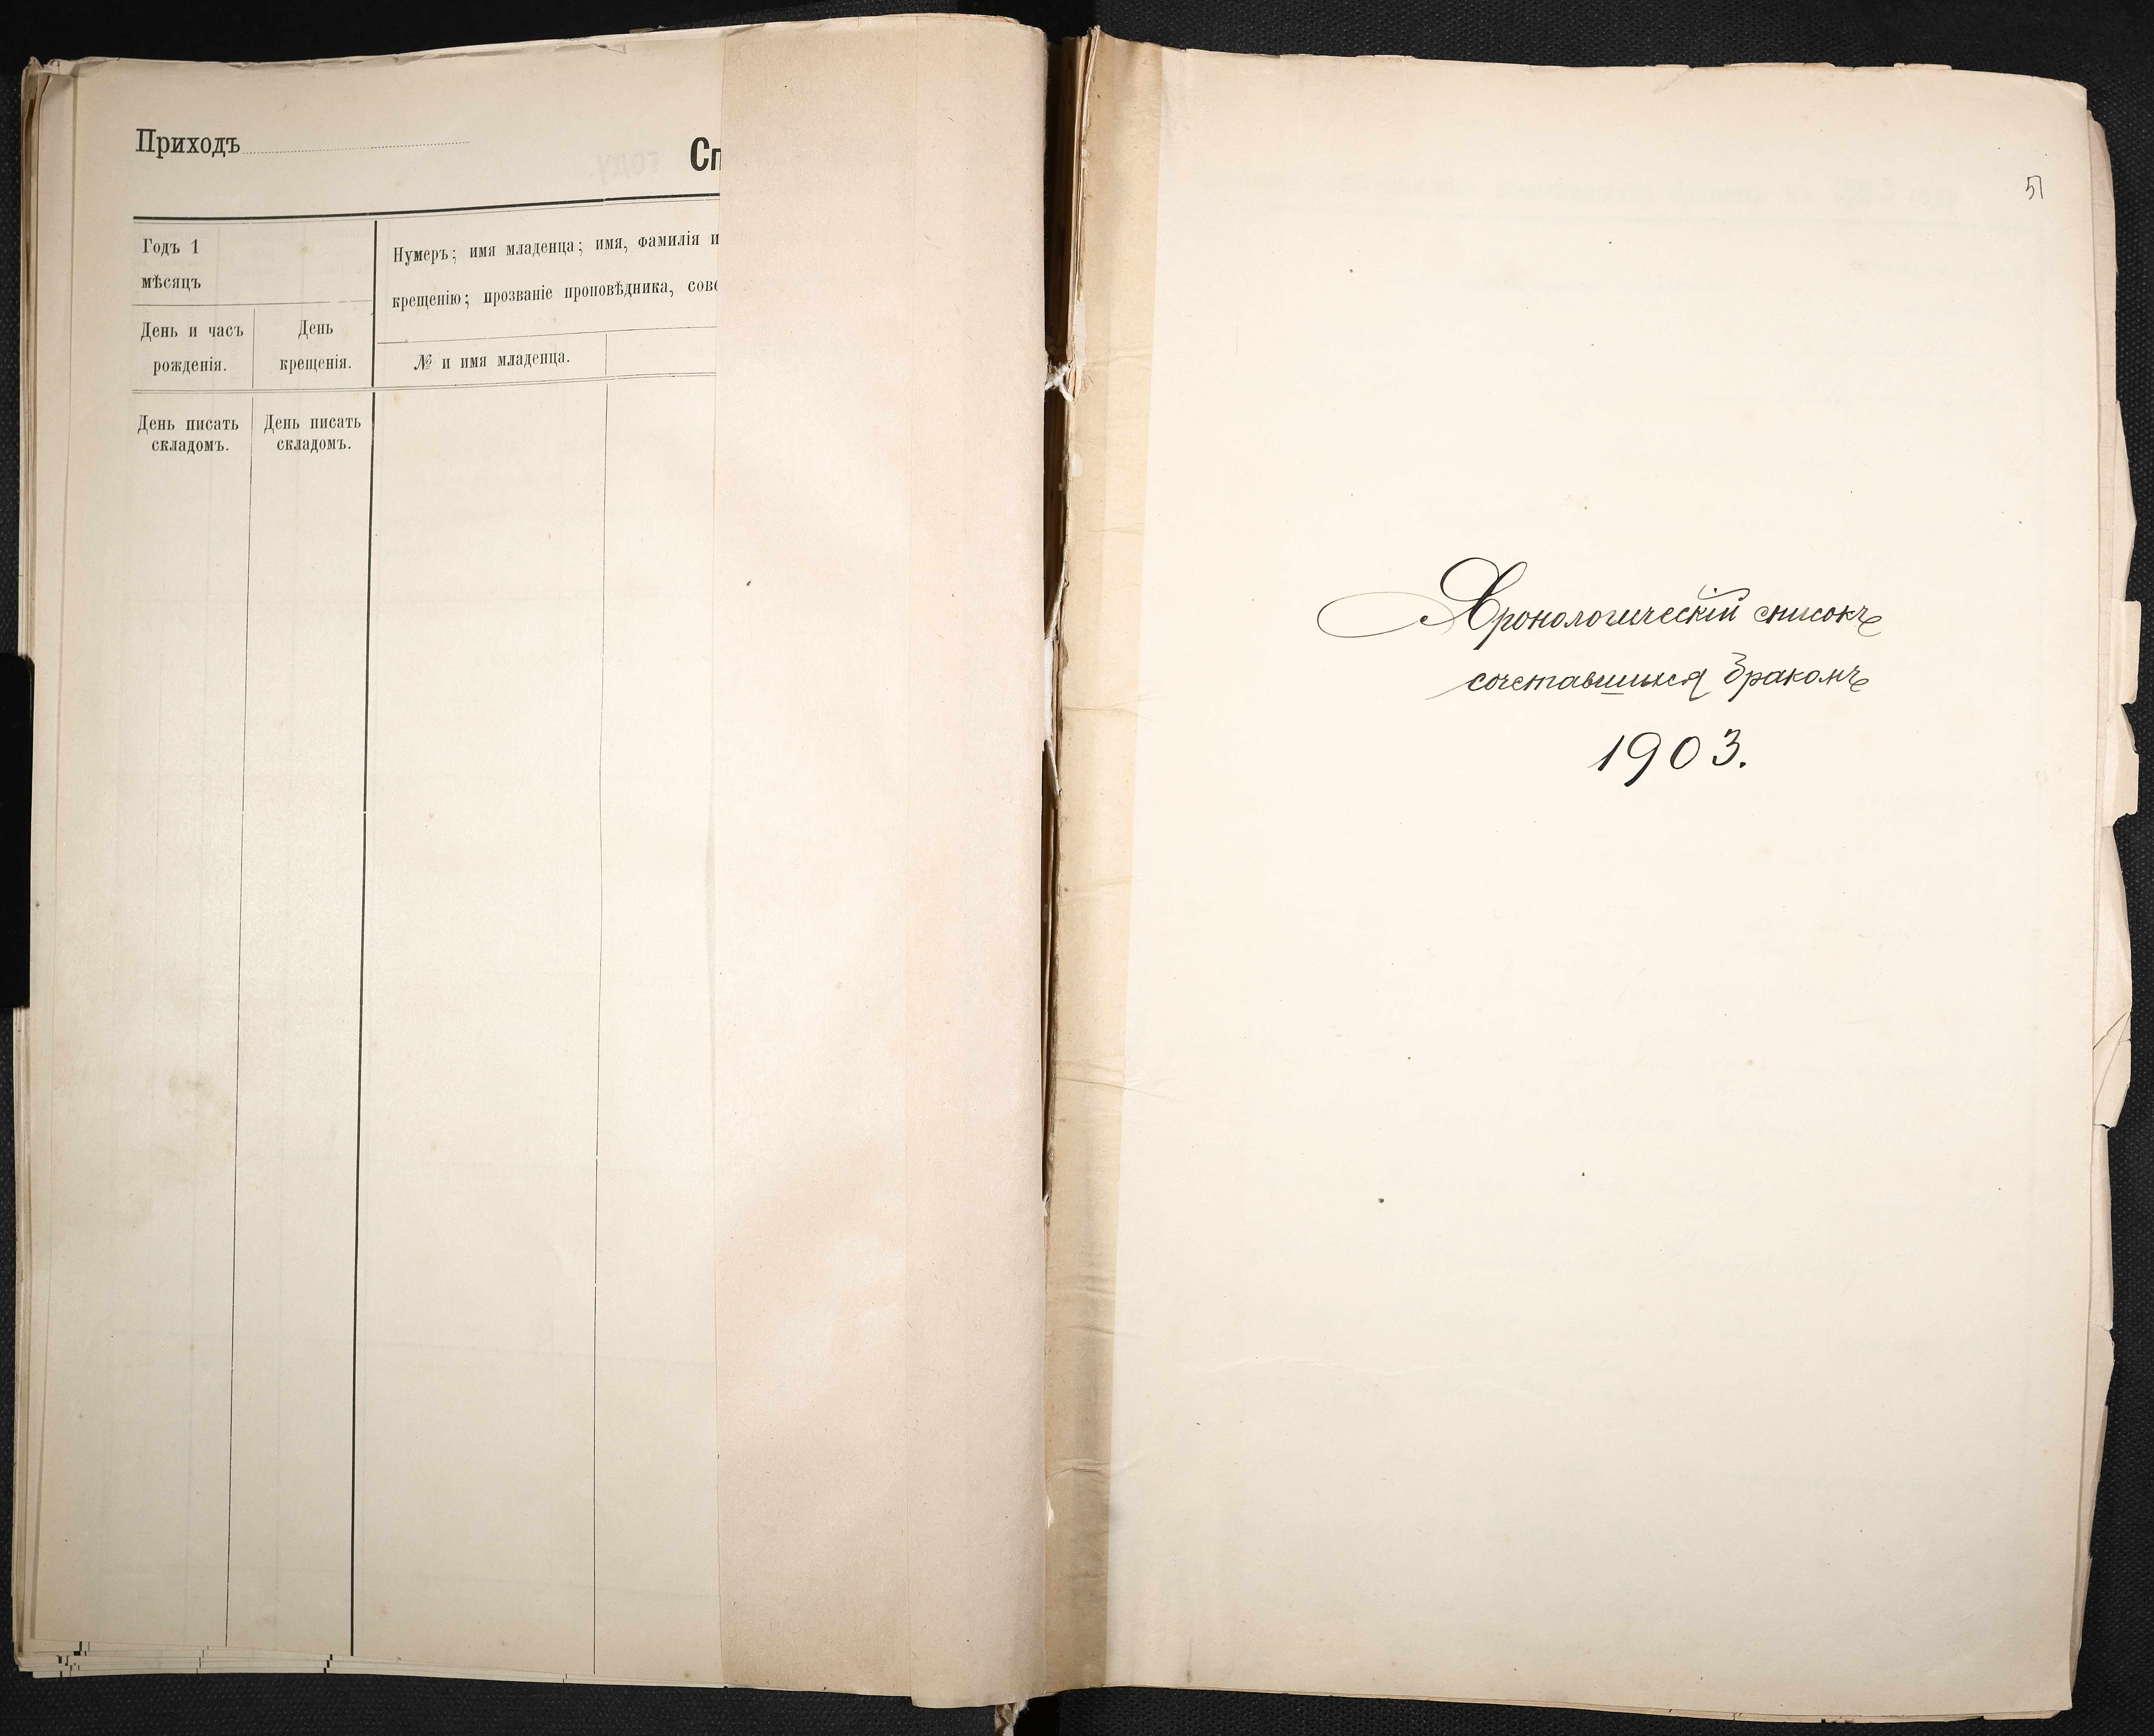 Приходъ
Сп
Годъ 1
мѣсяцъ
Нумеръ; имя младенца; имя, фамилія и
крещенію; прозваніе проповѣдника, сове
День и часъ
рожденія.
День
крещенія.
№ и имя младенца.
День писать
складомъ.
День писать
складомъ.
51
Хронологическій списокъ
сочетавшихся бракомъ
1903.